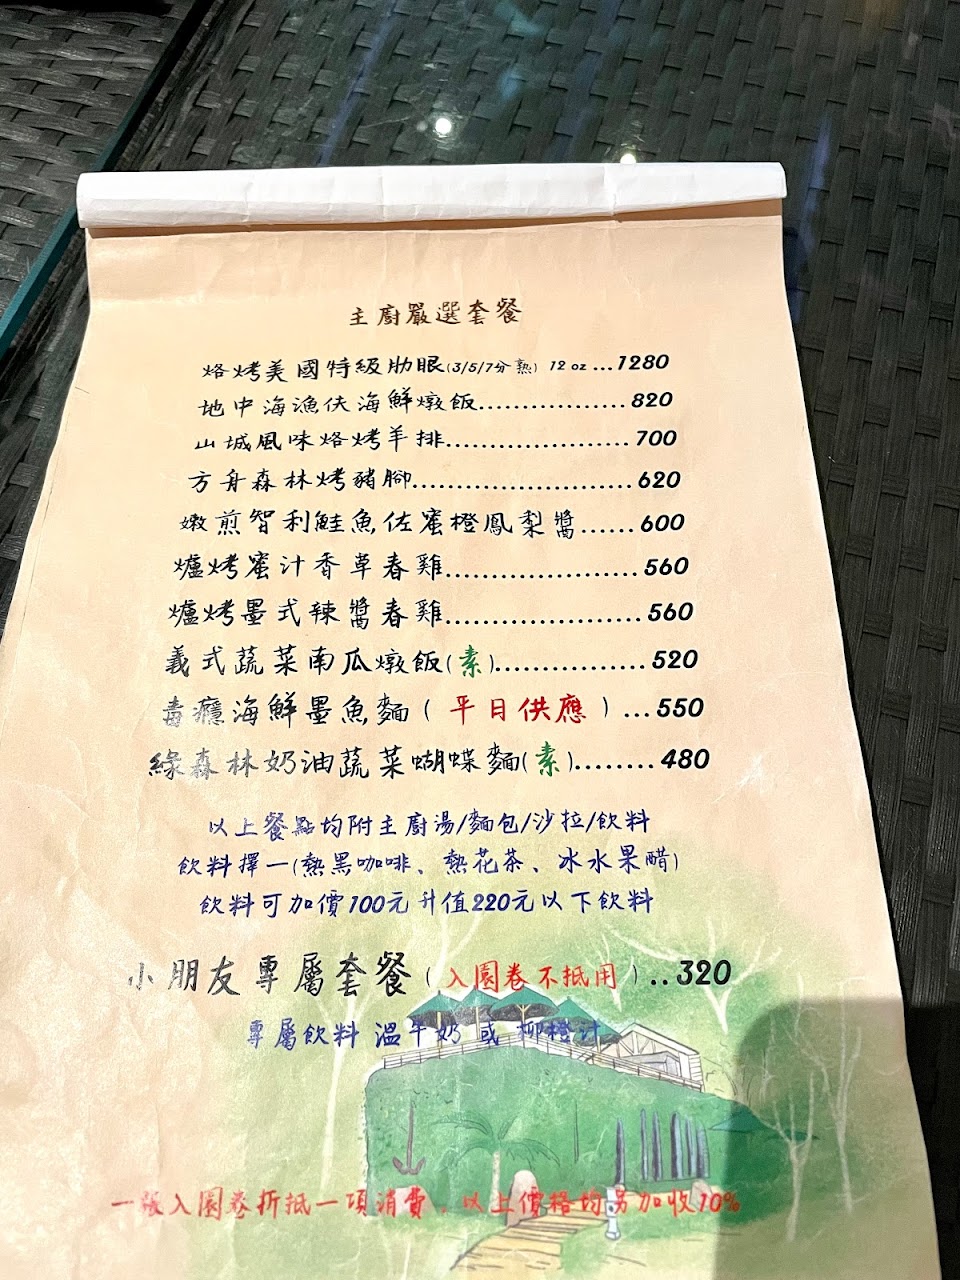 主廚嚴選套餐
烙烤美國特級肋眼(3/5/7分熟) 12 oz ...1280
地中海漁伕海鮮燉飯.................820
山城風味烙烤羊排......................700
方舟森林烤豬腳.........................620
嫩煎智利鮭魚佐蜜橙鳳梨醬......600
爐烤蜜汁香草春雞......................560
爐烤墨式辣醬春雞......................560
義式蔬菜南瓜燉飯(素)................520
毒癮海鮮墨魚麵(平日供應)...550
綠森林奶油蔬菜蝴蝶麵(素)........480
以上餐點均附主廚湯/麵包/沙拉/飲料
飲料擇一(熱黑咖啡、熱花茶、冰水果醋)
飲料可加價100元升值220元以下飲料
小朋友專屬套餐(入園卷不抵用)..320
專屬飲料 溫牛奶 或 柳橙汁
一張入園卷折抵一項消費，以上價格均另加收10%